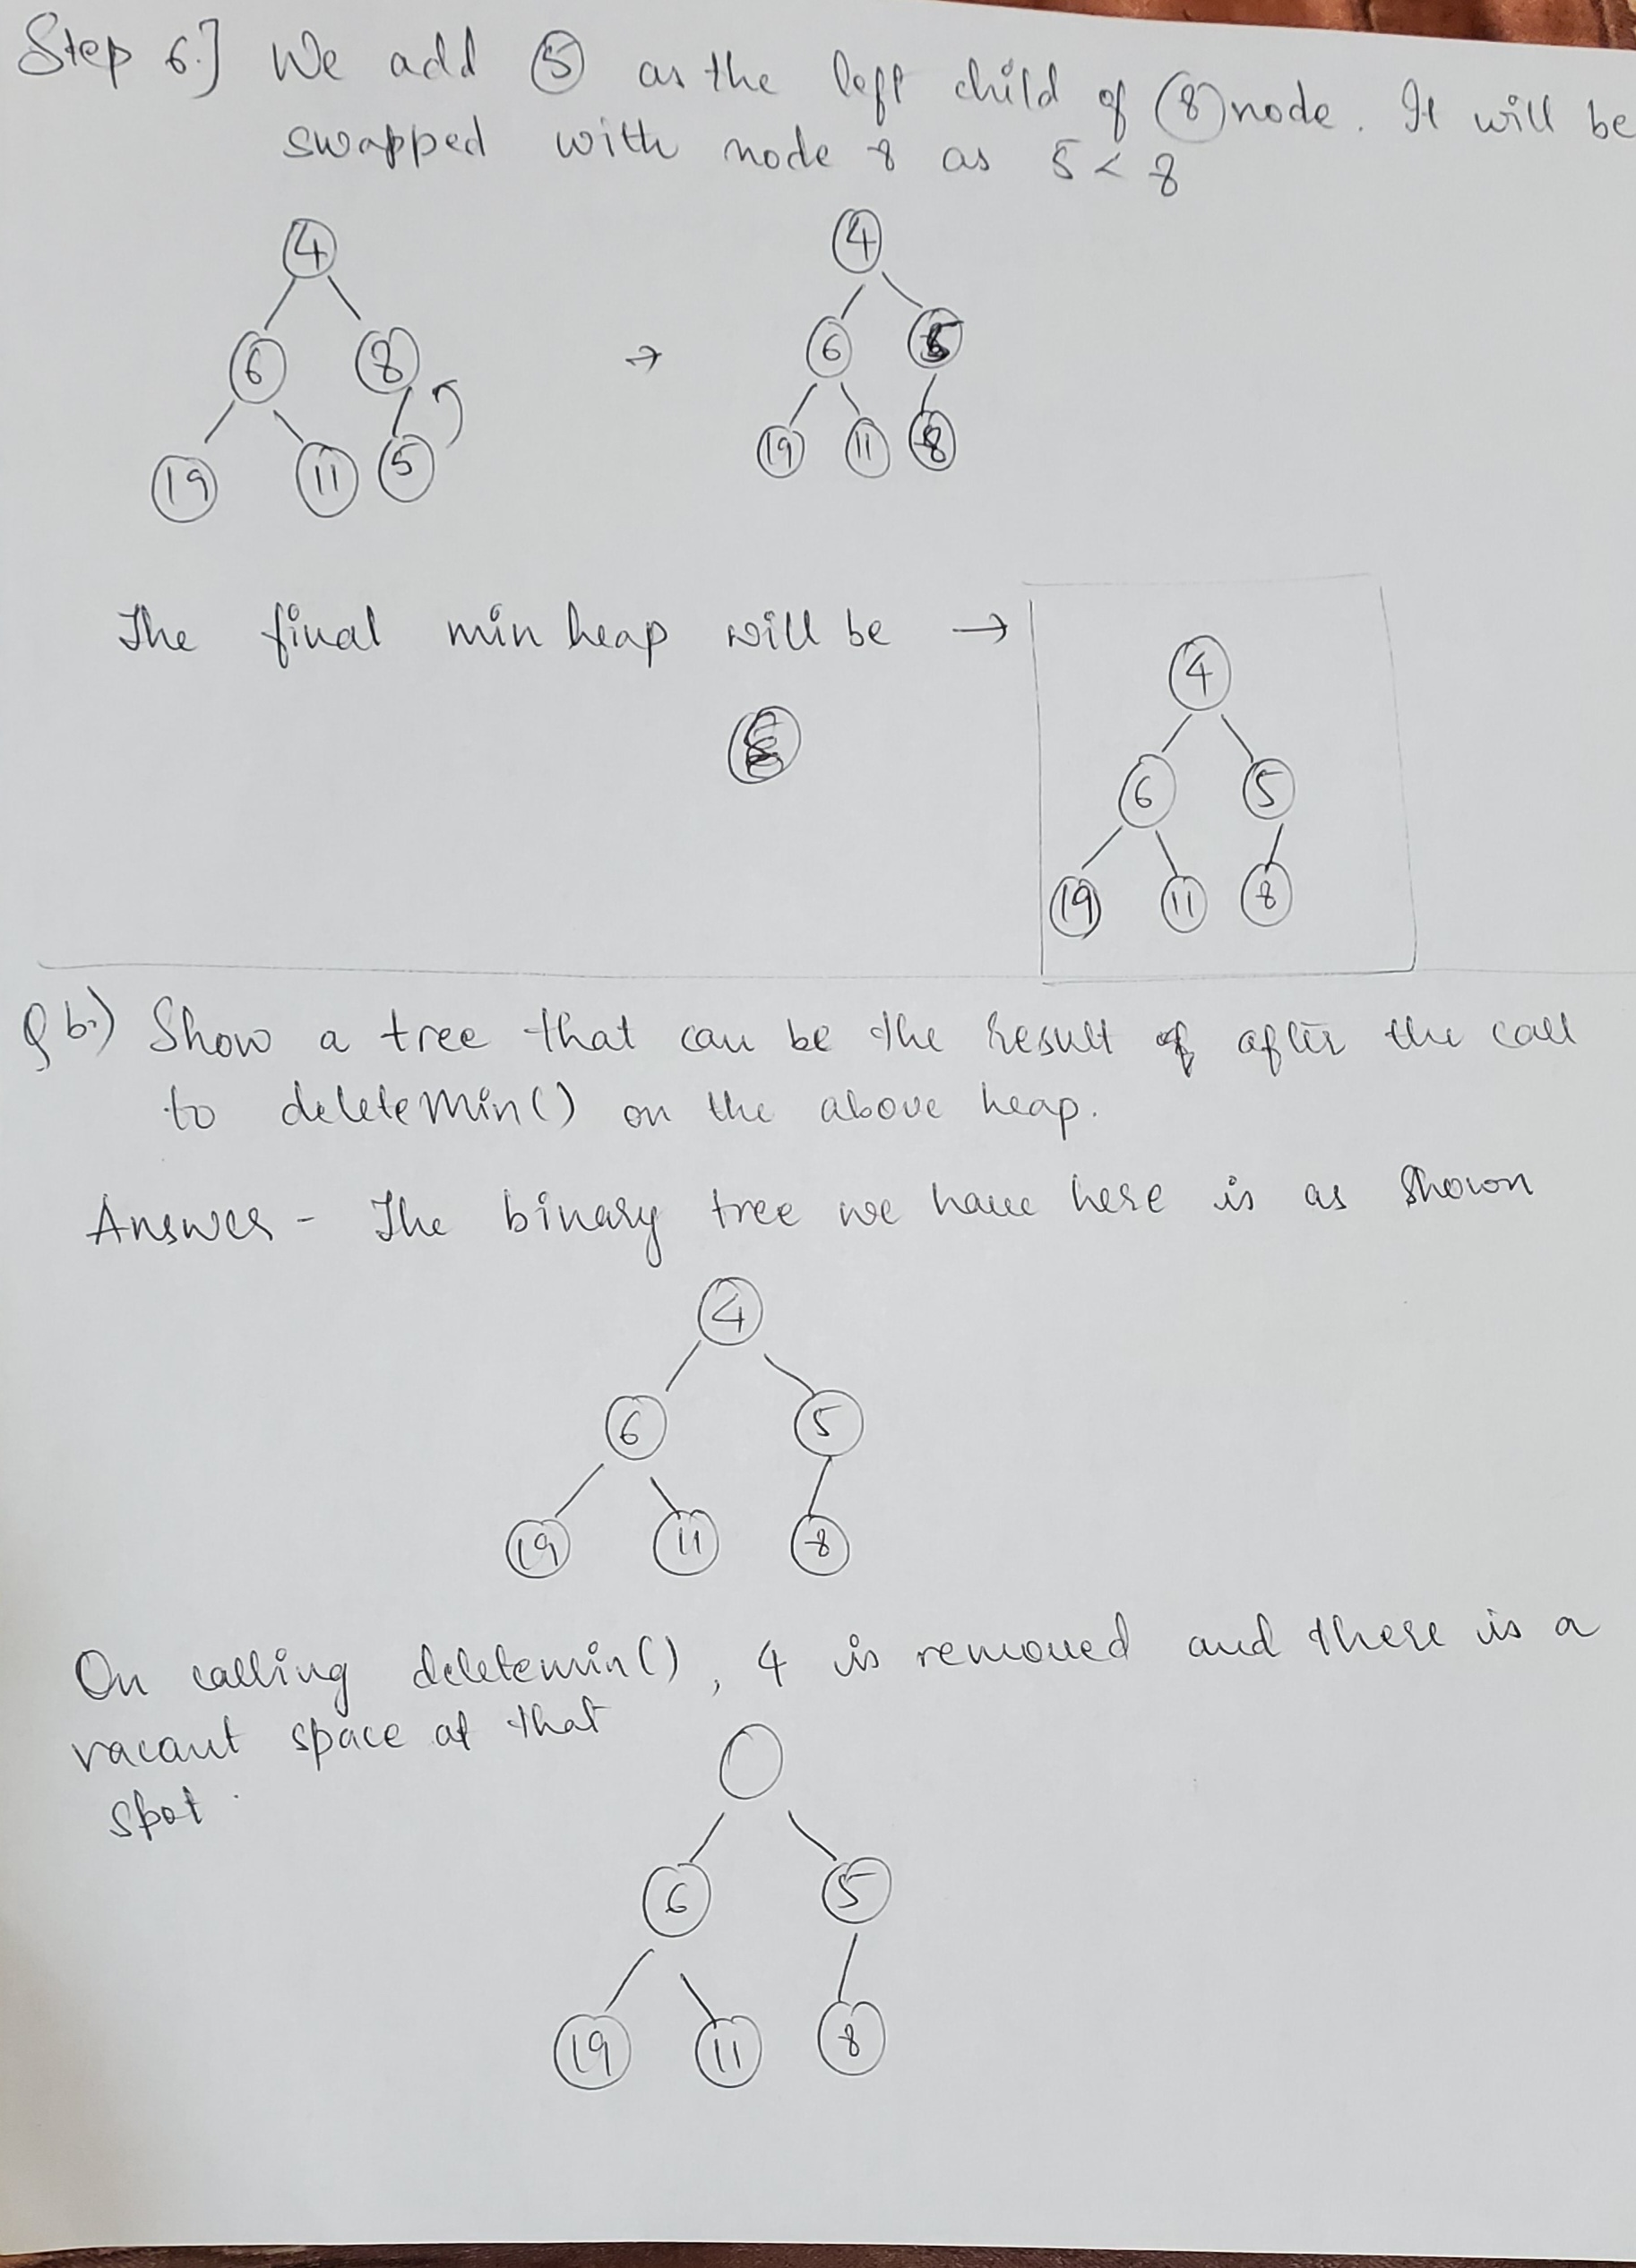 Step 6.] We add 5 as the left child of 8 node. It will be
swapped with node 8 as 5 < 8
4
6 8
19 11 5
→
4
6 5
19 11 8
The final min heap will be →
4
6 5
19 11 8
Q b.) Show a tree that can be the result after the call
to deleteMin() on the above heap.
Answer - The binary tree we have here is as shown
4
6 5
19 11 8
On calling deletemin(), 4 is removed and there is a
vacant space at that
spot.
6 5
19 11 8